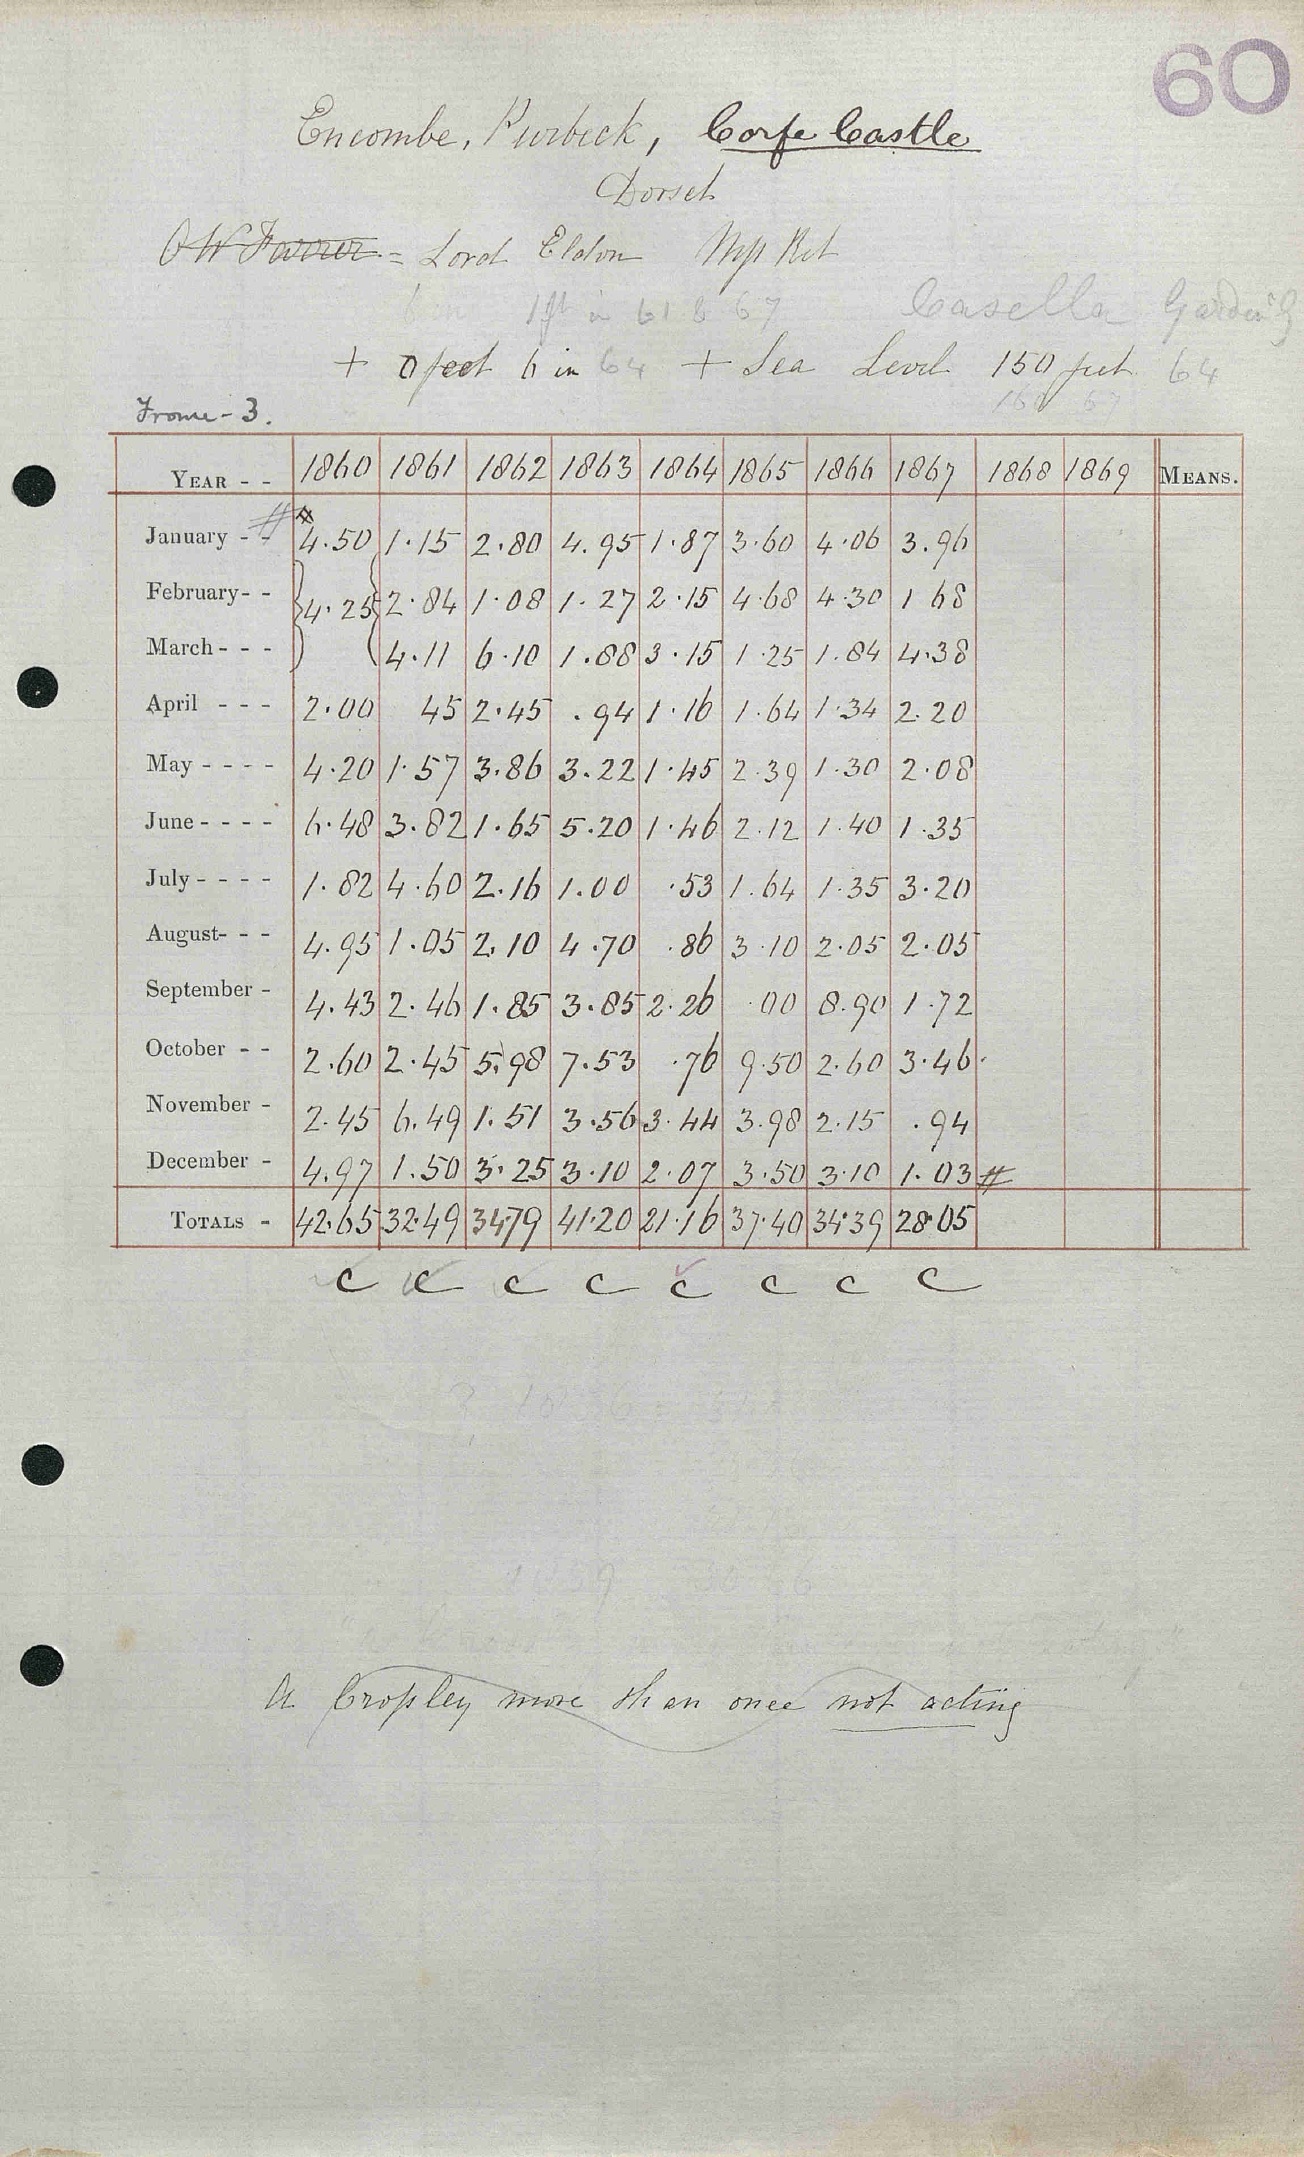 60
Encombe, Purbeck, Corfe Castle
Dorset
O W Farrer = Lord Eldon Mss Ret
6 in 1 ft in 61 & 67 Casella Garden G
+ 0 feet 6 in 64 + Sea Level 150 feet 64
150 67
Frome - 3.
YEAR - - 1860 1861 1862 1863 1864 1865 1866 1867 1868 1869 MEANS.
January - - # # 4.50 1.15 2.80 4.95 1.87 3.60 4.06 3.96
February - - } 4.25 { 2.84 1.08 1.27 2.15 4.68 4.30 1 68
March - - - 4.11 6.10 1.88 3.15 1.25 1.84 4.38
April - - - 2.00 45 2.45 .94 1.16 1.64 1.34 2.20
May - - - - 4.20 1.57 3.86 3.22 1.45 2.39 1.30 2.08
June - - - - 6.48 3.82 1.65 5.20 1.46 2.12 1.40 1.35
July - - - - 1.82 4.60 2.16 1.00 .53 1.64 1.35 3.20
August- - - 4.95 1.05 2.10 4.70 .86 3.10 2.05 2.05
September - 4.43 2.46 1.85 3.85 2.26 .00 8.90 1.72
October - - 2.60 2.45 5.98 7.53 .76 9.50 2.60 3.46
November - 2.45 6.49 1.51 3.56 3.44 3.98 2.15 .94
December - 4.97 1.50 3.25 3.10 2.07 3.50 3.10 1.03 #
TOTALS - 42.65 32.49 34.79 41.20 21.16 37.40 34.39 28.05
C C C C C C C C
A Cropley more than once not acting